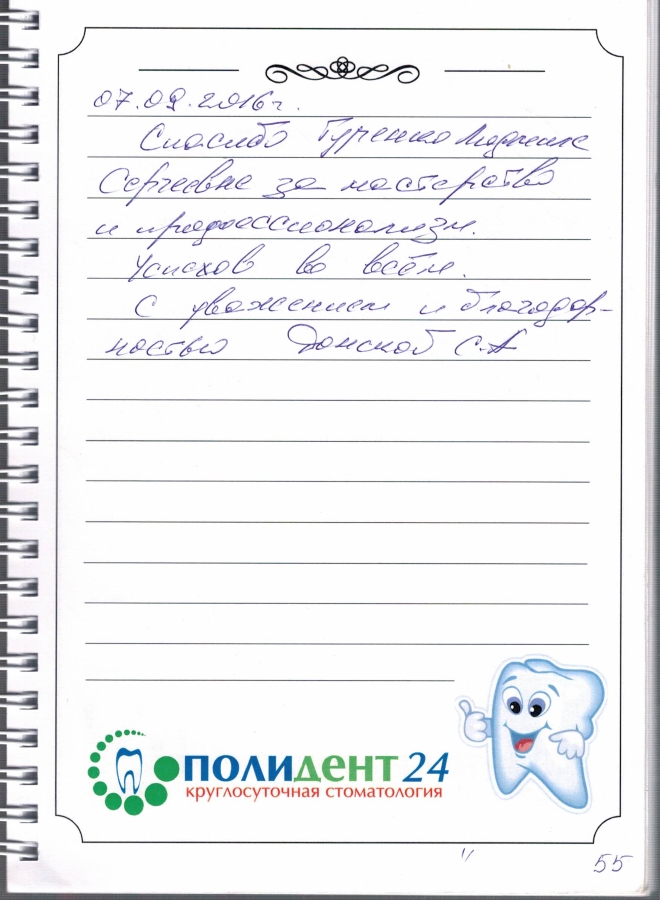 07.09.2016г.
Спасибо Гуренко Людмиле
Сергеевне за мастерство
и профессионализм.
Успехов во всём.
С уважением и благодар-
ностью Донской С.А
ПОЛИДЕНТ 24
круглосуточная стоматология
55